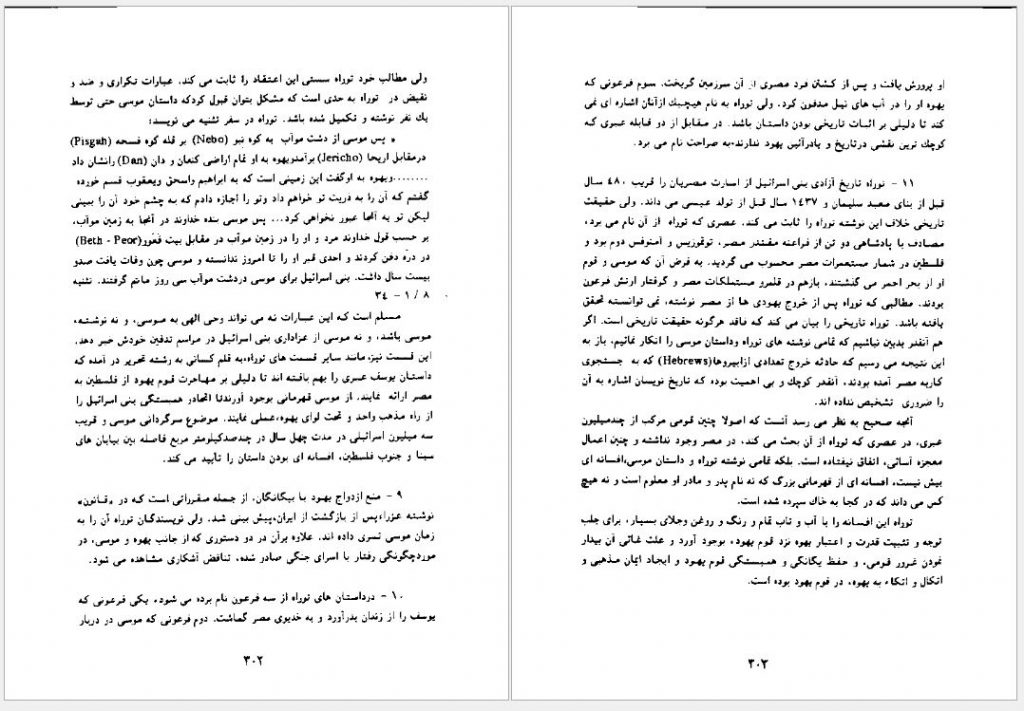 ولی مطالب خود توراه سستی این اعتقاد را ثابت می کند. عبارات تکراری و ضد و
نقیض در توراه به حدی است که مشکل بتوان قبول کردکه داستان موسی حتی توسط
یك نفر نوشته و تکمیل شده باشد. توراه در سفر تثنیه می نویسد:
« پس موسی از دشت موآب به کوه نبو (Nebo) بر قله کوه فسحه (Pisgah)
درمقابل اریحا (Jericho) برآمدویهوه به او تمام اراضی کنعان و دان (Dan) رانشان داد
........ویهوه به اوگفت این زمینی است که به ابراهیم واسحق ویعقوب قسم خورده
گفتم که آن را به ذریت تو خواهم داد وتو را اجازه دادم که به چشم خود آن را ببینی
لیکن تو به آنجا عبور نخواهی کرد... پس موسی بنده خداوند در آنجا به زمین موآب،
بر حسب قول خداوند مرد و او را در زمین موآب در مقابل بیت فغور(Beth - Peor)
در درّه دفن کردند و احدی قبر او را تا امروز ندانسته و موسی چون وفات یافت صدو
بیست سال داشت. بنی اسرائیل برای موسی دردشت موآب سی روز ماتم گرفتند. تثنیه
٨ / ١ - ٣٤
مسلم است که این عبارات نه می تواند وحی الهی به موسی، و نه نوشته،
موسی باشد، و نه موسی از عزاداری بنی اسرائیل در مراسم تدفین خودش خبر دهد.
این قسمت نیز،مانند سایر قسمت های توراه،به قلم کسانی به رشته تحریر در آمده که
داستان یوسف عبری را بهم بافته اند تا دلیلی بر مهاجرت قوم یهود از فلسطین به
مصر ارائه نمایند. از موسی قهرمانی بوجود آوردندتا اتحادر همبستگی بنی اسرائیل را
از راه مذهب واحد و تحت لوای یهوه،عملی نمایند. موضوع سرگردانی موسی و قریب
سه میلیون اسرائیلی در مدت چهل سال در چندصدکیلومتر مربع فاصله بین بیابان های
سینا و جنوب فلسطین، افسانه ای بودن داستان را تأیید می کند.
٩ - منع ازدواج یهود با بیگانگان، از جمله مقرراتی است که در «قانون»
نوشته عزرا،پس از بازگشت از ایران،پیش بینی شد. ولی نویسندگان توراه آن را به
زمان موسی تسری داده اند. علاوه برآن در دو دستوری که از جانب یهوه و موسی، در
موردچگونگی رفتار با اسرای جنگی صادر شده، تناقض آشکاری مشاهده می شود.
١٠ - درداستان های توراه از سه فرعون نام برده می شود، یکی فرعونی که
یوسف را از زندان بدرآورد و به خدیوی مصر گماشت. دوم فرعونی که موسی در دربار
٣٠٢
او پرورش یافت و پس از کشتن فرد مصری از آن سرزمین گریخت. سوم فرعونی که
یهوه او را در آب های نیل مدفون کرد. ولی توراه به نام هیچیك ازآنان اشاره ای نمی
کند تا دلیلی بر اثبات تاریخی بودن داستان باشد. در مقابل از دو قابله عبری که
کوچك ترین نقشی درتاریخ و یادرآئین یهود ندارند،به صراحت نام می برد.
١١ - توراه تاریخ آزادی بنی اسرائیل از اسارت مصریان را قریب ٤٨٠ سال
قبل از بنای معبد سلیمان و ١٤٣٧ سال قبل از تولد عیسی می داند. ولی حقیقت
تاریخی خلاف این نوشته توراه را ثابت می کند. عصری که توراه از آن نام می برد،
مصادف با پادشاهی دو تن از فراعنه مقتدر مصر، توتموزیس و آمنوفس دوم بود و
فلسطین در شمار مستعمرات مصر محسوب می گردید. به فرض آن که موسی و قوم
او از بحر احمر می گذشتند، بازهم در قلمرو مستملکات مصر و گرفتار ارتش فرعون
بودند. مطالبی که توراه پس از خروج یهودی ها از مصر نوشته، نمی توانسته تحقق
یافته باشد. توراه تاریخی را بیان می کند که فاقد هرگونه حقیقت تاریخی است. اگر
هم آنقدر بدبین نباشیم که تمامی نوشته های توراه وداستان موسی را انکار نمائیم، باز به
این نتیجه می رسیم که حادثه خروج تعدادی ازابیروها(Hebrews) که به جستجوی
کاربه مصر آمده بودند، آنقدر کوچك و بی اهمیت بوده که تاریخ نویسان اشاره به آن
را ضروری تشخیص نداده اند.
آنچه صحیح به نظر می رسد آنست که اصولا چنین قومی مرکب از چندمیلیون
عبری، در عصری که توراه از آن بحث می کند، در مصر وجود نداشته و چنین اعمال
معجزه آسائی، اتفاق نیفتاده است. بلکه تمامی نوشته توراه و داستان موسی،افسانه ای
بیش نیست، افسانه ای از قهرمانی بزرگ که نه نام پدر و مادر او معلوم است و نه هیچ
کس می داند که در کجا به خاك سپرده شده است.
توراه این افسانه را با آب و تاب تمام و رنگ و روغن وجلای بسیار، برای جلب
توجه و تثبیت قدرت و اعتبار یهوه نزد قوم یهود، بوجود آورد و علت غائی آن بیدار
نمودن غرور قومی، و حفظ یگانگی و همبستگی قوم یهود و ایجاد ایمان مذهبی و
اتکال و اتکاء به یهوه، در قوم یهود بوده است.
٣٠٣